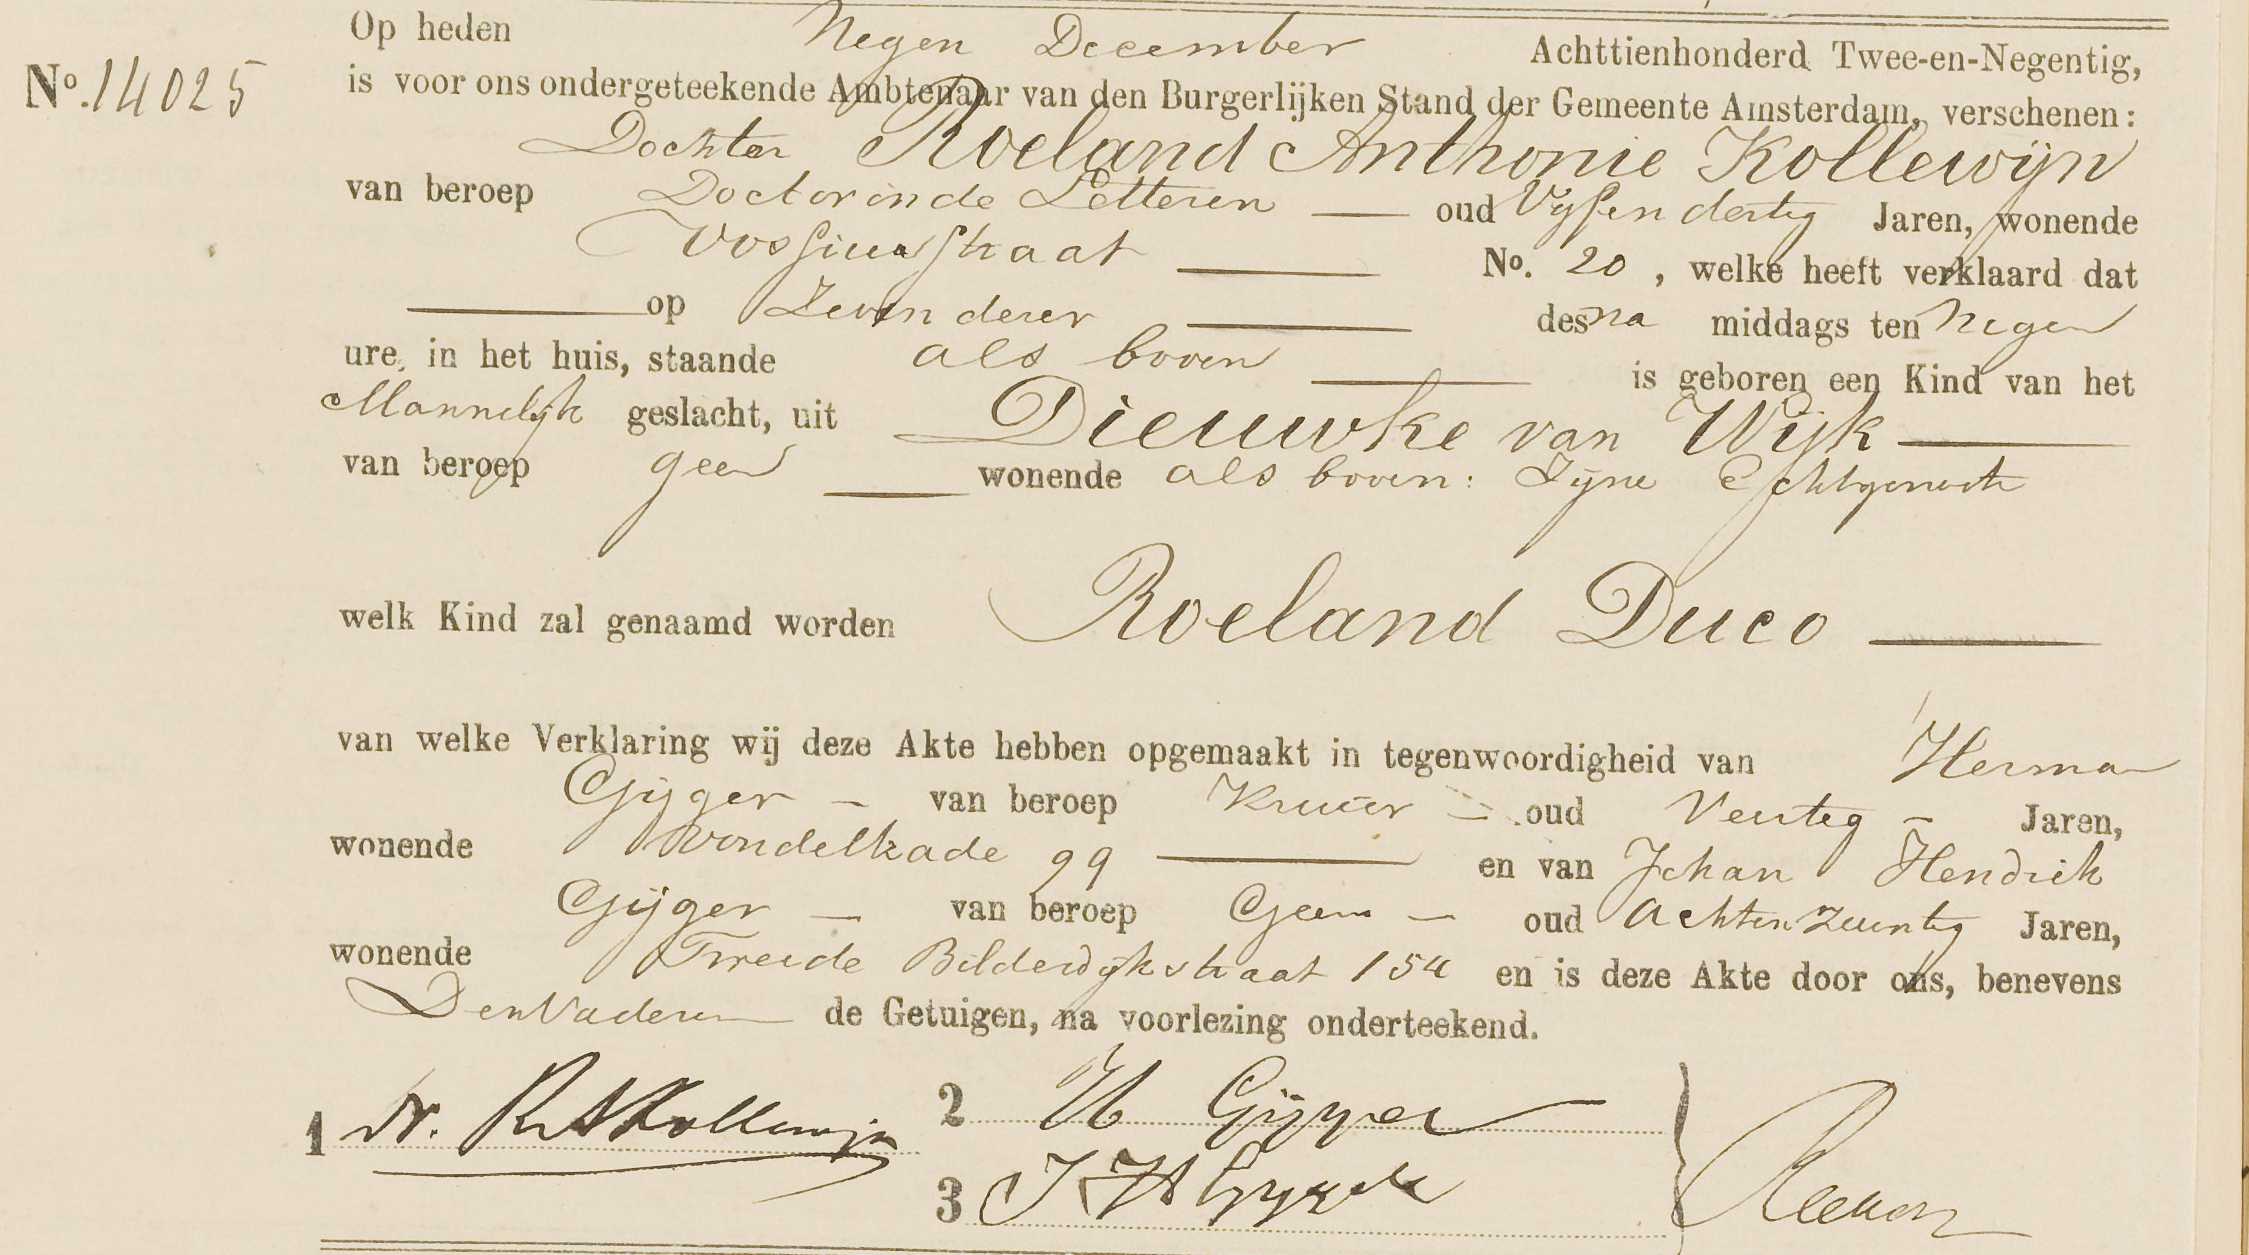 Op heden Negen December Achttienhonderd Twee-en-Negentig,
No. 14025
is voor ons ondergeteekende Ambtenaar van den Burgerlijken Stand der Gemeente Amsterdam, verschenen:
Dochter Roeland Anthonie Kollewijn
van beroep Doctor in de Letteren — oud Vijfendertig Jaren, wonende
Vossiusstraat — No. 20, welke heeft verklaard dat
— op Zeven dezer — des na middags ten Negen
ure, in het huis, staande als boven — is geboren een Kind van het
Mannelijk geslacht, uit Dieuwke van Wijk —
van beroep geen — wonende als boven: Zijne Echtgenoote
welk Kind zal genaamd worden Roeland Duco —
van welke Verklaring wij deze Akte hebben opgemaakt in tegenwoordigheid van Herman
Gijger — van beroep Kruier — oud Veertig — Jaren,
wonende Vondelkade 99 — en van Johan Hendrik
Gijger — van beroep Geen — oud Achtenzeventig Jaren,
wonende Tweede Bilderdijkstraat 154 en is deze Akte door ons, benevens
Den Vader en de Getuigen, na voorlezing onderteekend.
1 Dr. R A Kollewijn 2 H Gijger
3 J H Gijger